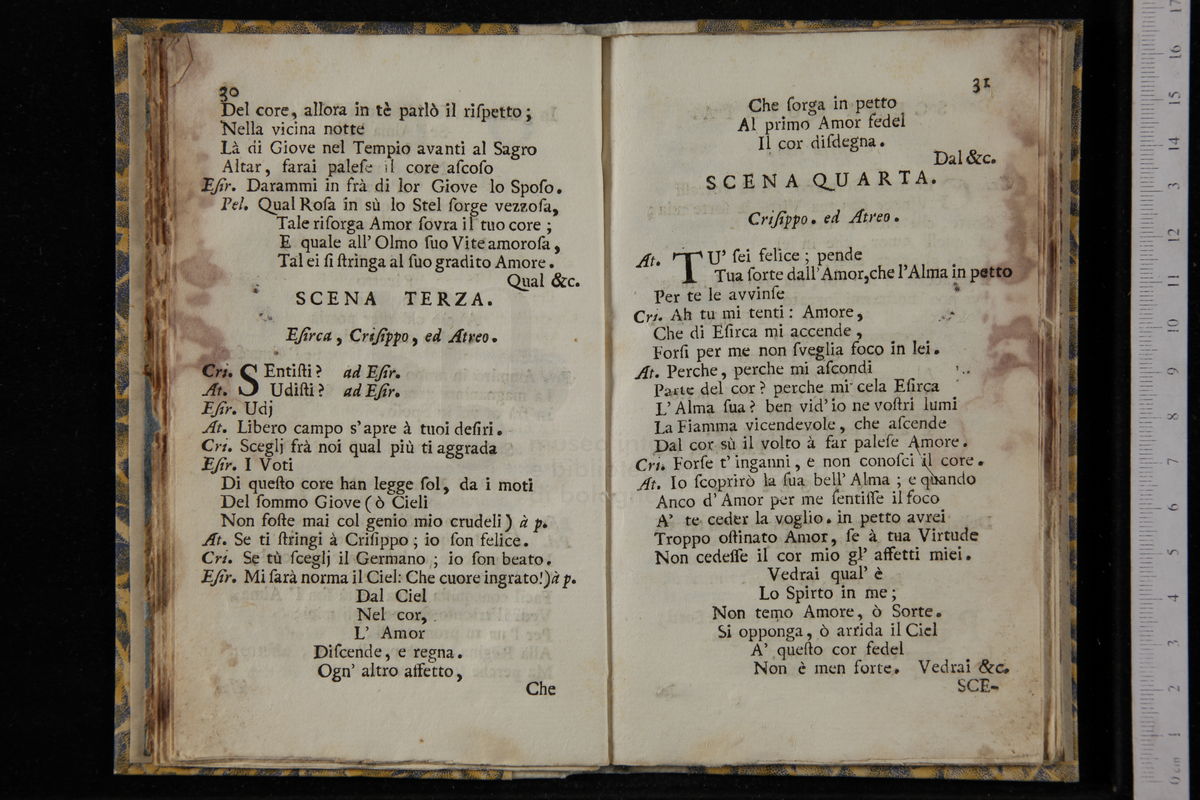 30
Del core, allora in tè parlò il riſpetto;
Nella vicina notte
Là di Giove nel Tempio avanti al Sagro
Altar, farai paleſe il core aſcoſo
Eſir. Darammi in frà di lor Giove lo Spoſo.
Pel. Qual Roſa in sù lo Stel ſorge vezzoſa,
Tale riſorga Amor ſovra il tuo core;
E quale all' Olmo ſuo Vite amoroſa,
Tal ei ſi ſtringa al ſuo gradito Amore.
Qual &c.
SCENA TERZA.
Eſirca, Criſippo, ed Atreo.
Cri. SEntiſti? ad Eſir.
At. Udiſti? ad Eſir.
Eſir. Udj
At. Libero campo s'apre à tuoi deſiri.
Cri. Sceglj frà noi qual più ti aggrada
Eſir. I Voti
Di queſto core han legge ſol, da i moti
Del ſommo Giove (ò Cieli
Non foſte mai col genio mio crudeli) à p.
At. Se ti ſtringi à Criſippo; io ſon felice.
Cri. Se tù ſceglj il Germano; io ſon beato.
Eſir. Mi ſarà norma il Ciel: Che cuore ingrato!) à p.
Dal Ciel
Nel cor,
L' Amor
Diſcende, e regna.
Ogn' altro affetto,
Che
31
Che ſorga in petto
Al primo Amor fedel
Il cor diſdegna.
Dal &c.
SCENA QUARTA.
Criſippo. ed Atreo.
At. TU' ſei felice; pende
Tua ſorte dall'Amor, che l'Alma in petto
Per te le avvinſe
Cri. Ah tu mi tenti: Amore,
Che di Eſirca mi accende,
Forſi per me non ſveglia foco in lei.
At. Perche, perche mi aſcondi
Parte del cor? perche mi cela Eſirca
L' Alma ſua? ben vid' io ne voſtri lumi
La Fiamma vicendevole, che aſcende
Dal cor sù il volto à far paleſe Amore.
Cri. Forſe t' inganni, e non conoſci il core.
At. Io ſcoprirò la ſua bell' Alma; e quando
Anco d' Amor per me ſentiſſe il foco
A' te ceder la voglio. in petto avrei
Troppo oſtinato Amor, ſe à tua Virtude
Non cedeſſe il cor mio gl' affetti miei.
Vedrai qual' è
Lo Spirto in me;
Non temo Amore, ò Sorte.
Si opponga, ò arrida il Ciel
A' queſto cor fedel
Non è men forte. Vedrai &c.
SCE-